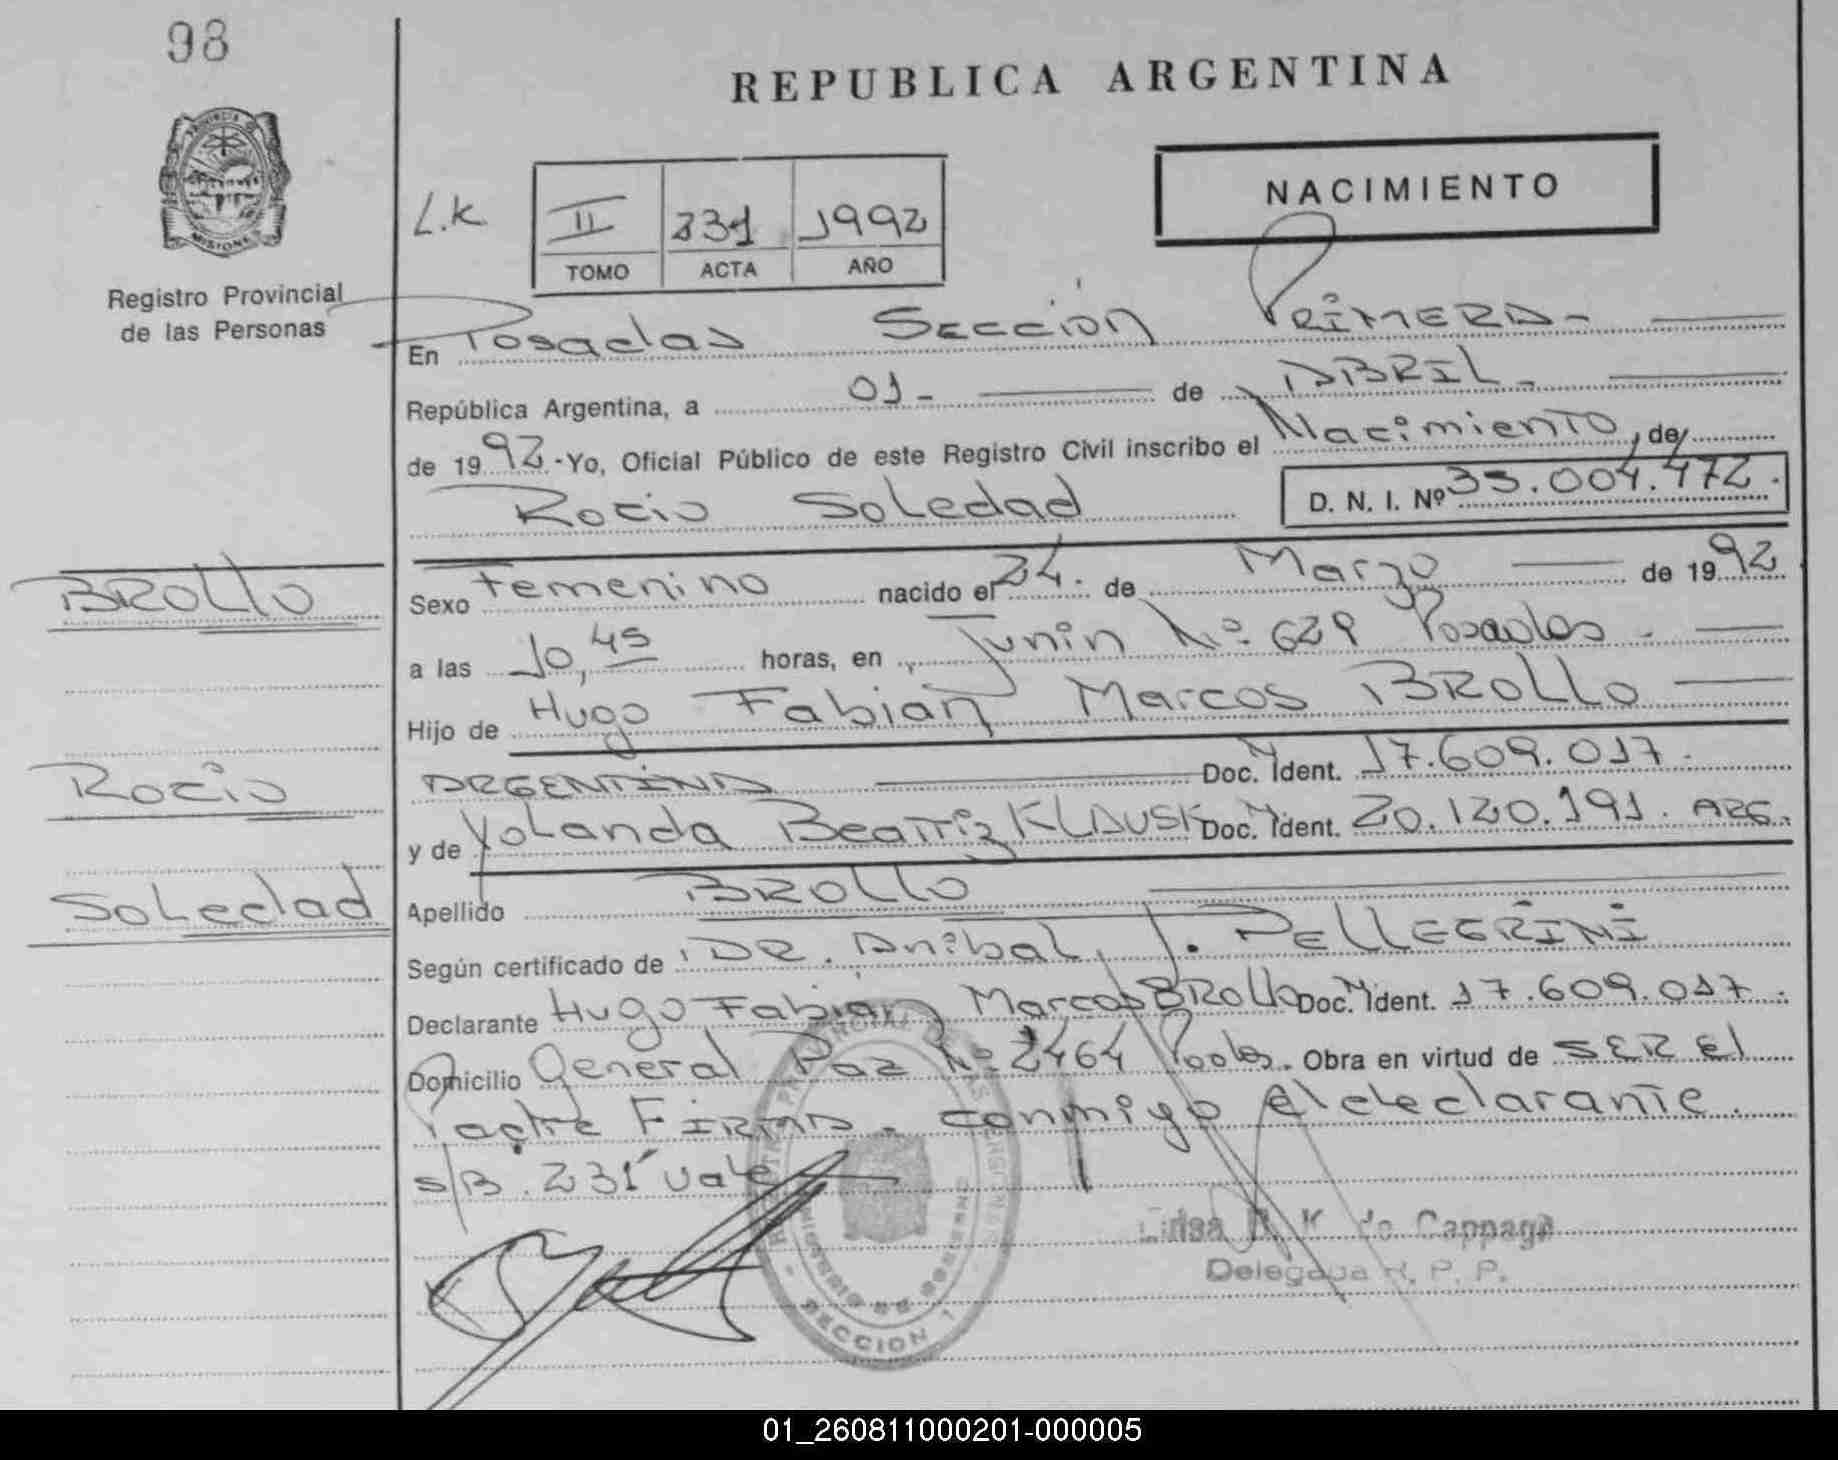 98
REPUBLICA ARGENTINA
NACIMIENTO
L.K
II 231 1992
TOMO ACTA AÑO
PROVINCIA DE
MISIONES
Registro Provincial
de las Personas
En Posadas Sección PRIMERA-
República Argentina, a 01- de ABRIL-
de 1992-Yo, Oficial Público de este Registro Civil inscribo el Nacimiento, de
Rocio Soledad D. N. I. Nº 33.004.472.
BROLLO
Sexo Femenino nacido el 24. de Marzo de 1992
a las 10,45 horas, en Junin Nº 629 Posadas -
Hijo de Hugo Fabian Marcos BROLLO
Rocio
ARGENTINA Doc. Ident. 17.609.017.
y de Yolanda Beatriz KLAUSK Doc. Ident. 20.120.191. ARG.
Soledad
Apellido BROLLO
Según certificado de DR. Anibal J. PELLEGRINI
Declarante Hugo Fabian Marcos BROLLO Doc. Ident. 17.609.017.
Domicilio General Paz Nº 2464 Pdas. Obra en virtud de SER El
Padre FIRMA. conmigo el declarante.
s/B. 231 vale
MINISTERIO DE GOBIERNO
SECCION 1
K. de Cappagé
Delegada R. P. P.
01_260811000201-000005